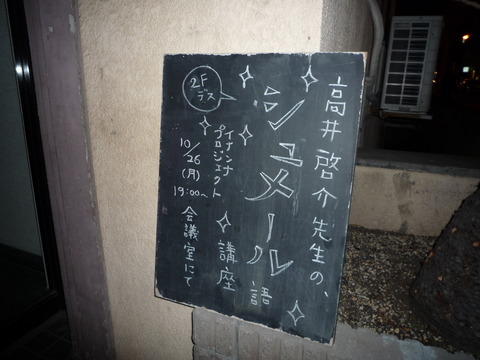 高井啓介先生の、
シュメール語
講座
イナンナ
プロジェクト
10/26
(月)
19:00~
会議室にて
2F
デス